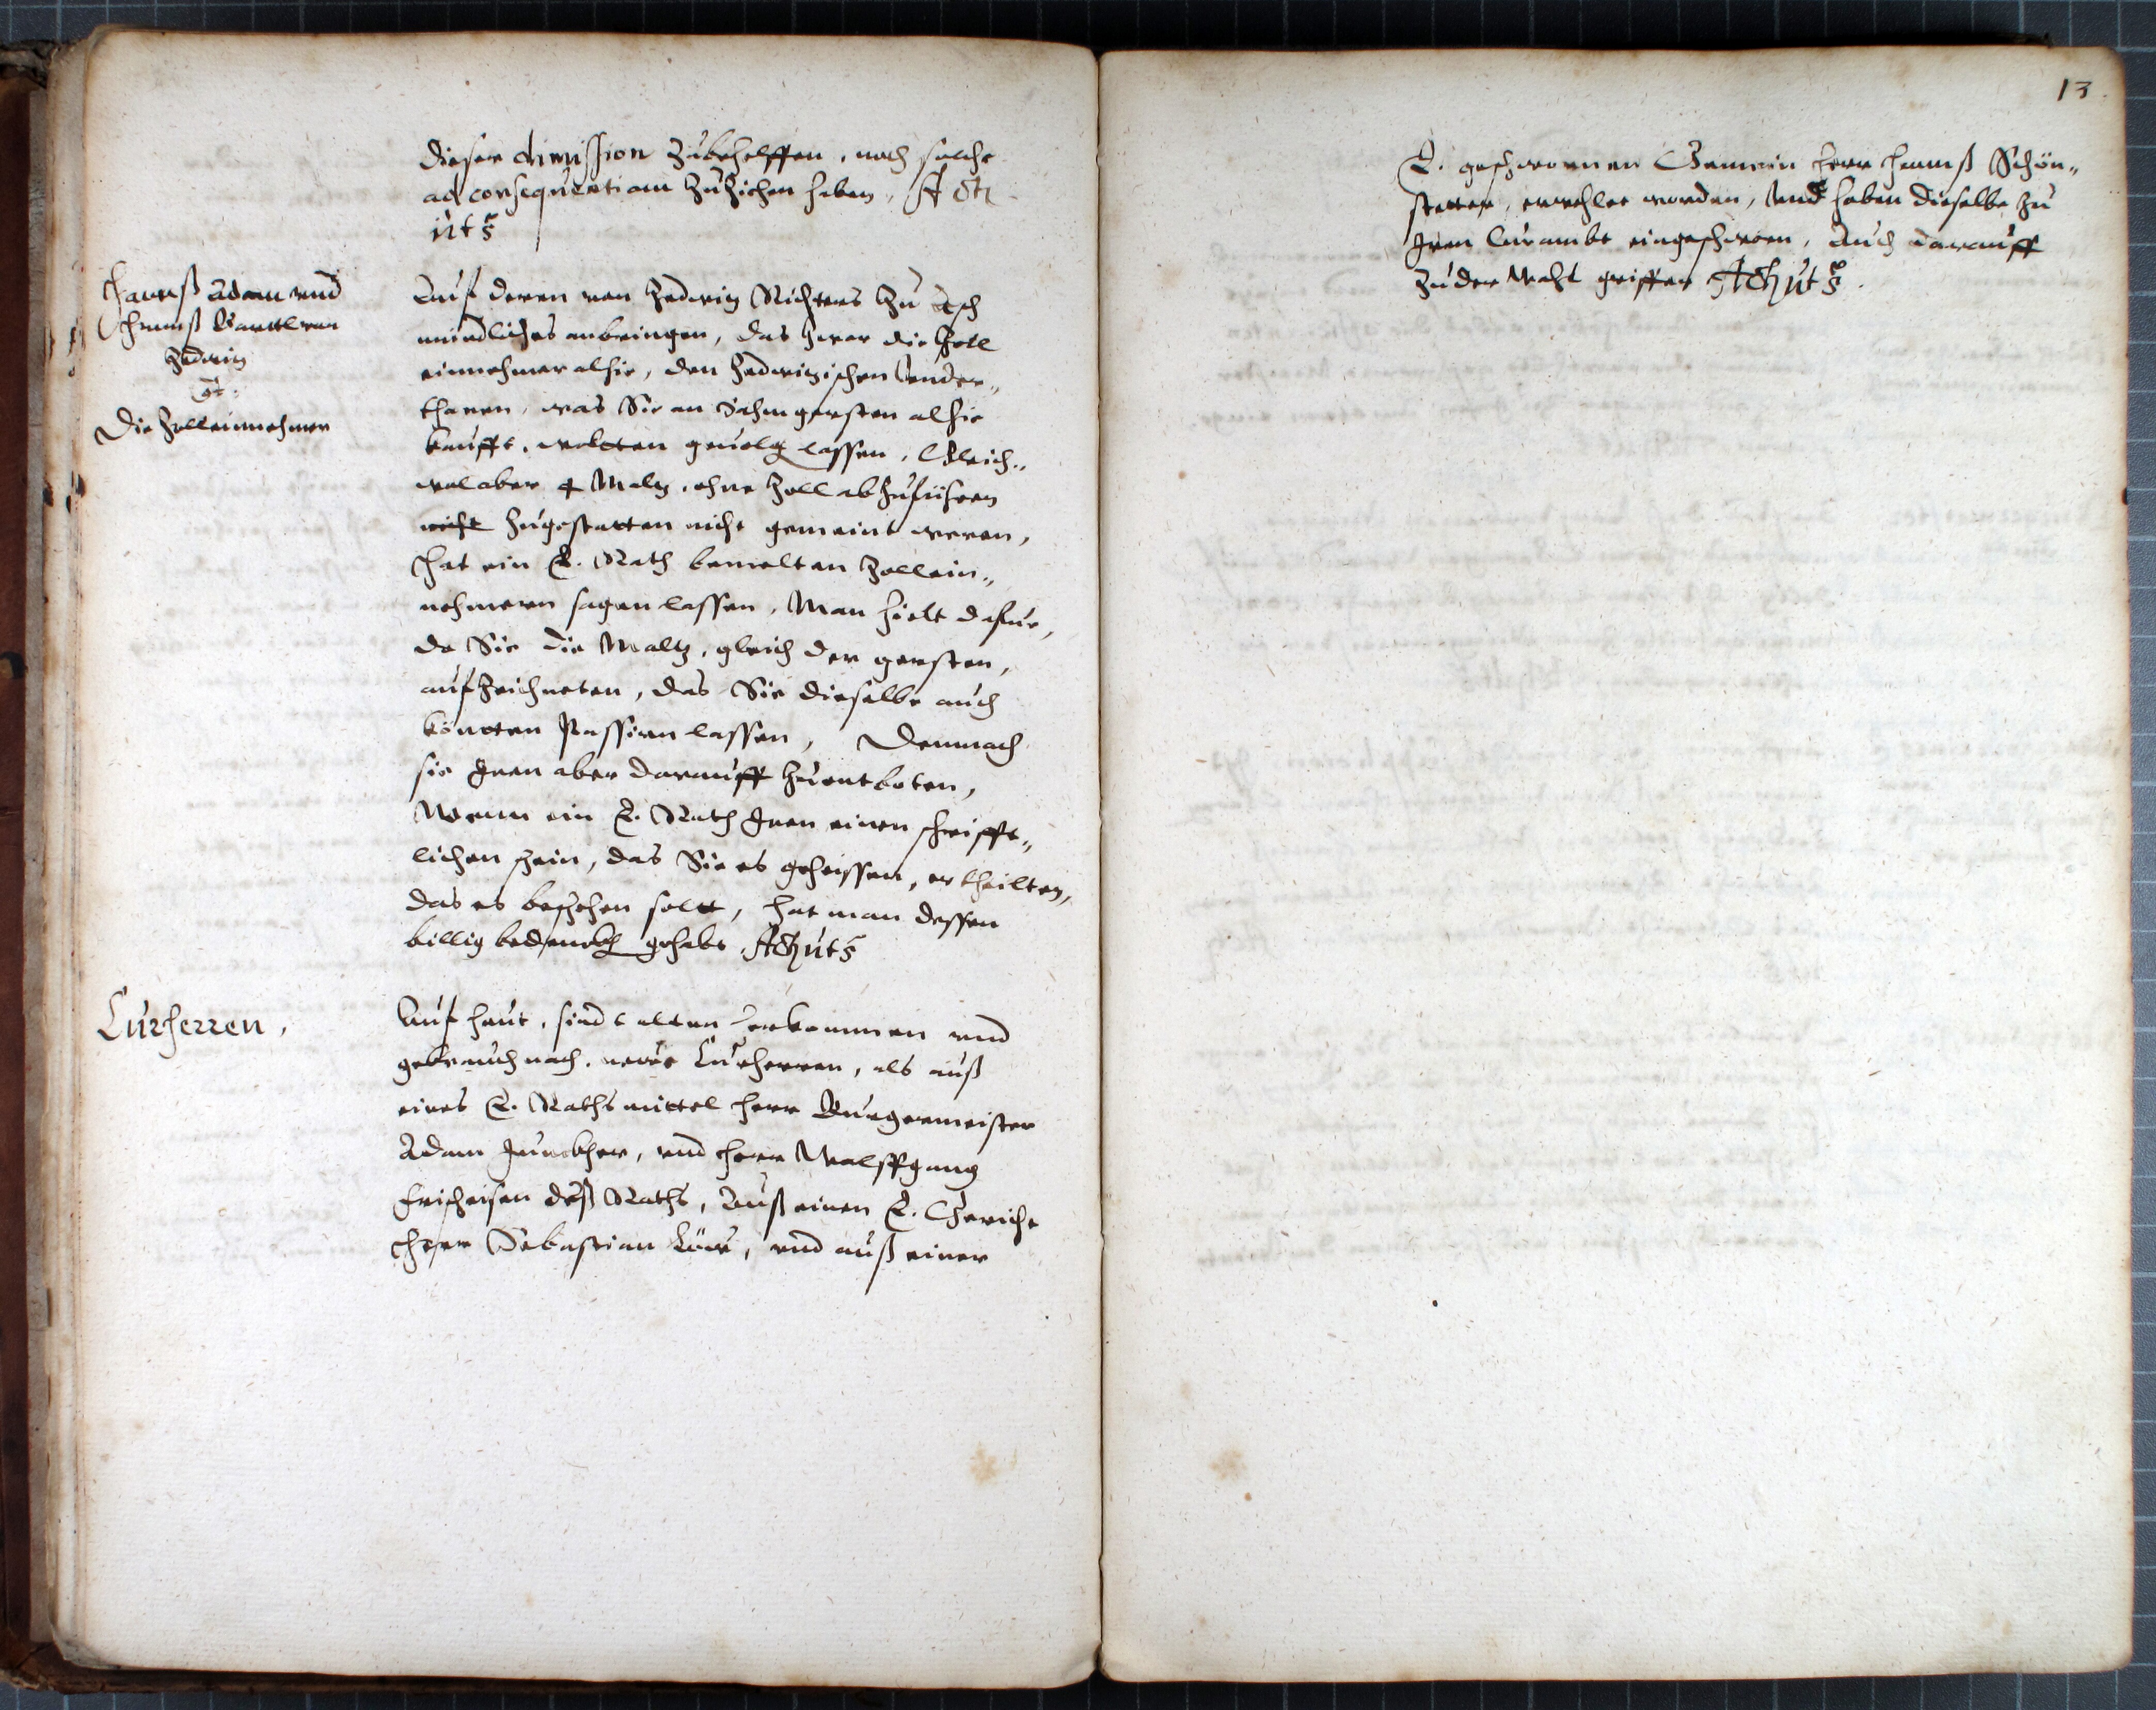 dieser dimission zubehelffen, noch solche
ad consequentiam zuziehen haben, Act.
uts
Hannß Adam vnd
Hannß Barttl von
Zedwitz
Die Zolleinnehmer
Auf deren von Zedwitz Richters zu Asch
mündliches anbringen, das zwar die Zoll
einnehmer alhie, den Zedwizischen Vnder„
thanen, was Sie an Sahmgersten alhie
kaufft, wolten gevolg lassen, Gleich„
wol aber 4 Maltz, ohne Zoll abzuführen
nicht zugestatten nicht gemeint weren,
Hat ein E. Rath bemelten Zollein„
nehmern sagen lassen, Man hielt dafur,
da Sie die Maltz, gleich der gersten,
aufzeichneten, das Sie dieselbe auch
könten Passirn lassen, Demnach
sie Jnen aber darauff zuentboten,
Wenn ein E. Rath Jnen einen schrifft„
lichen schein, das Sie es geheissen, ertheilten,
das es beschehen solt, hat man dessen
billig bedencken gehabt. Act uts
Curherren,
Auf heut, sind altem herkommen vnd
gebrauch nach, neue Curherren, als auß
eines E. Raths mittel Herr Burgermeister
Adam Junckher, vnd Herr Wolffgang
Frischeisen deß Raths, Auß einen E. Gericht
Herr Sebastian Löw, vnd auß einer
13
E. geschwornen Gemein Herr Hannß Schön„
stetter, erwehlet worden, Vnd haben dieselbe zu
Jren Curambt eingeschworn, Auch darauff
zu der Wahl griffen Act uts.